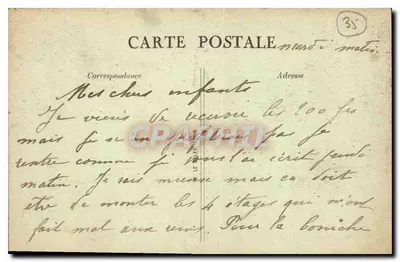 35
CARTE POSTALE
mardi matin
Correspondance
Adresse
Mes chers enfants
Je viens de recevoir les 200 frs
mais je ne m'explique pas je
rentre comme je vous l'ai écrit jeudi
matin. Je vais mieux mais ça doit
être de monter les 4 étages qui m'ont
fait mal aux reins. Pour la boniche